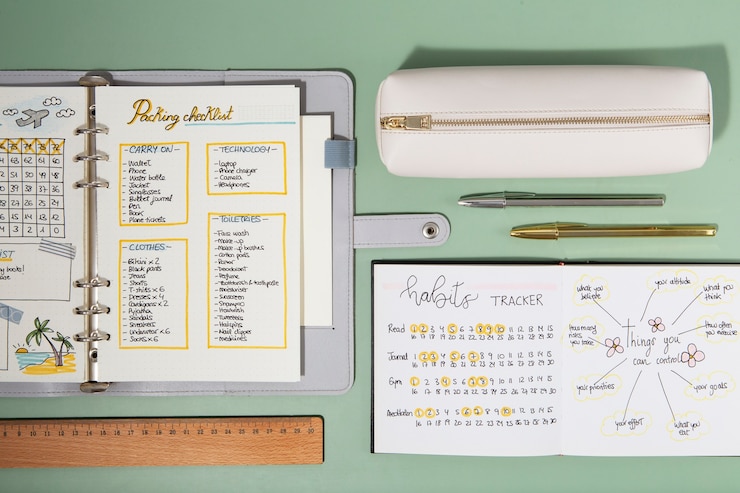 Packing checklist
- CARRY ON -
- Wallet
- Phone
- Water bottle
- Jacket
- Sunglasses
- Bullet journal
- Pen
- Book
- Plane tickets
- TECHNOLOGY -
- Laptop
- Phone charger
- Camera
- Headphones
- CLOTHES -
- Bikini x 2
- Black pants
- Jeans
- Shorts
- T-shirts x 6
- Dresses x 4
- Cardigans x 2
- Pyjatha
- Sandals
- Sneakers
- Underwear x 6
- Socks x 6
- TOILETRIES -
- Face wash
- Make-up
- Make-up brushes
- Cotton pads
- Razor
- Deodorant
- Perfume
- Toothbrush & toothpaste
- Moisturiser
- Sunscreen
- Shampoo
- Tweezers
- Hairpins
- Nail clipper
- Medicines
books!
habits TRACKER
Read 1 2 3 4 5 6 7 8 9 10 11 12 13 14 15
16 17 18 19 20 21 22 23 24 25 26 27 28 29 30
Journal 1 2 3 4 5 6 7 8 9 10 11 12 13 14 15
16 17 18 19 20 21 22 23 24 25 26 27 28 29 30
Gym 1 2 3 4 5 6 7 8 9 10 11 12 13 14 15
16 17 18 19 20 21 22 23 24 25 26 27 28 29 30
Meditation 1 2 3 4 5 6 7 8 9 10 11 12 13 14 15
16 17 18 19 20 21 22 23 24 25 26 27 28 29 30
what you
believe
your attitude
what you
think
how many
risks
you take
how often
you exercise
Things you
can control
your priorities
your goals
your effort
what you
eat